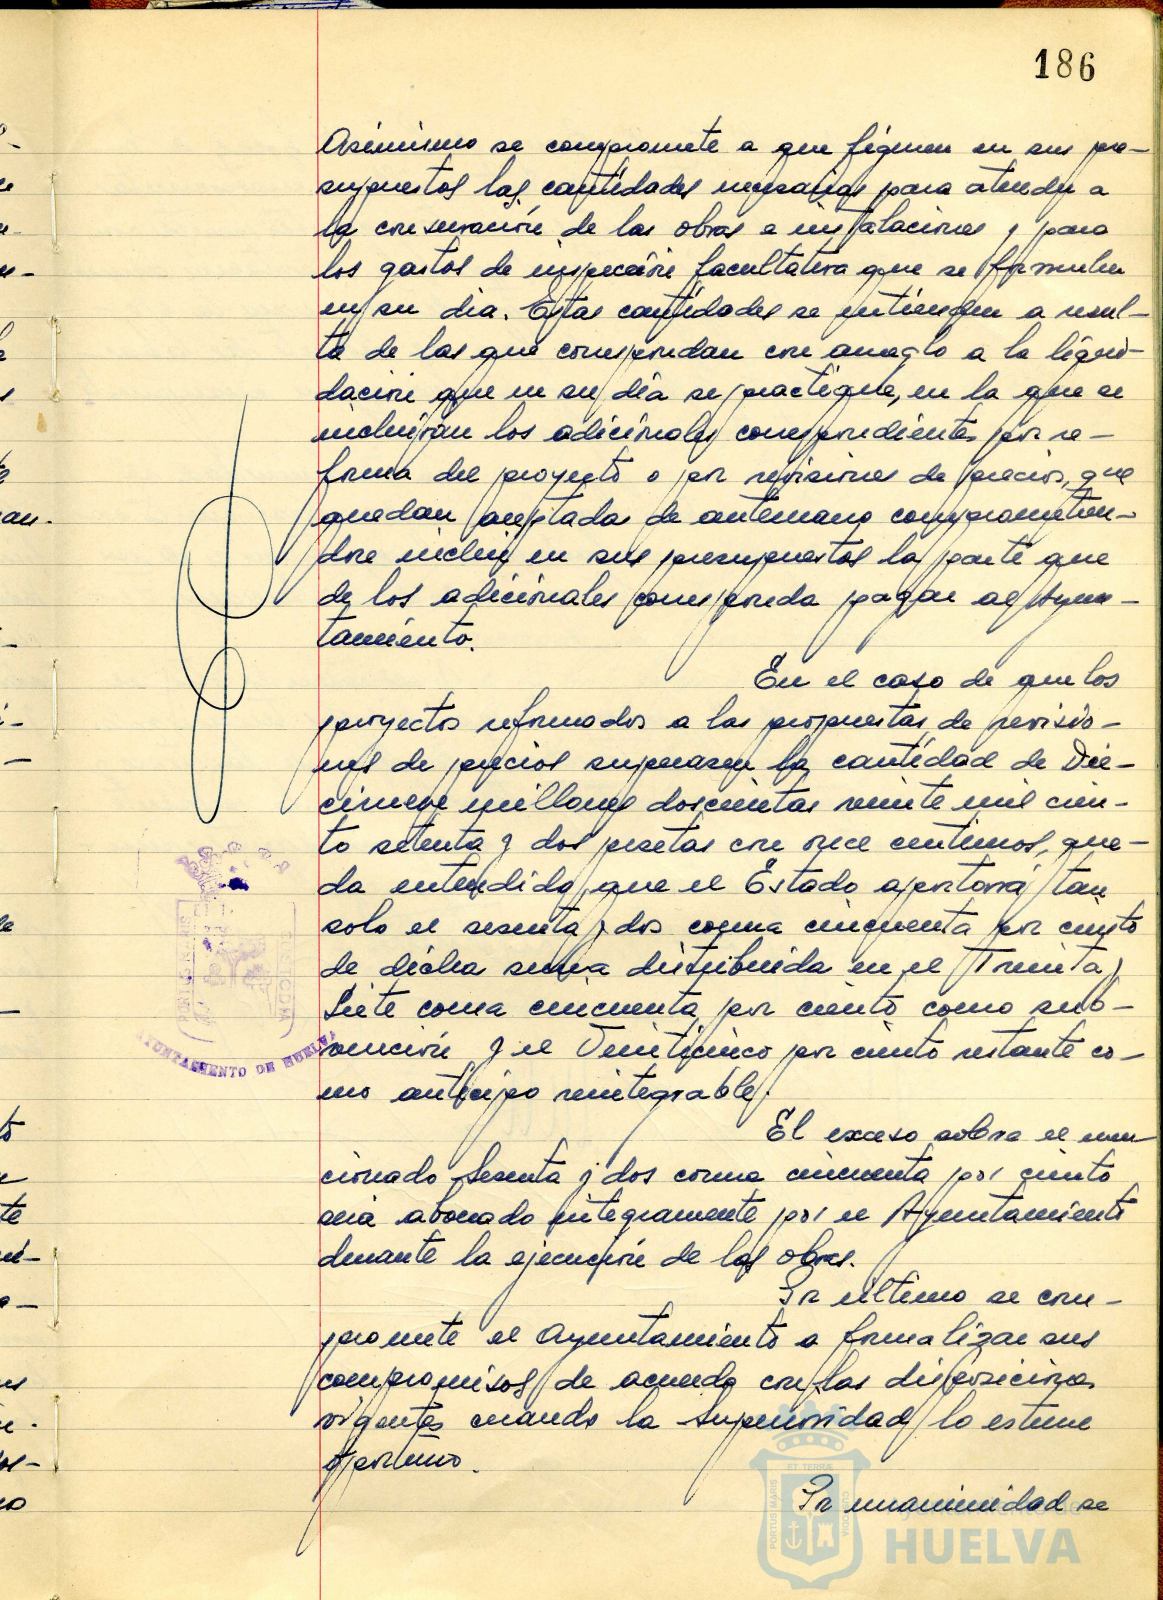 186
Asimismo se compromete a que figuren en sus pre-
supuestos las cantidades necesarias para atender a
la conservación de las obras e instalaciones y para
los gastos de inspección facultativa que se formulen
en su dia. Estas cantidades se entienden a resul-
ta de las que correspondan con arreglo a la liqui-
dación que en su día se practique, en la que se
incluirán los adicionales correspondientes por re-
forma del proyecto o por revisiones de precios, que
quedan aceptadas de antemano comprometien-
dose incluir en sus presupuestos la parte que
de los adicionales corresponda pagar al Ayun-
tamiento.
En el caso de que los
proyectos reformados a las propuestas de revisio-
nes de precios superasen la cantidad de Die-
cinueve millones doscientas veinte mil cien-
to setenta y dos pesetas con once centimos, que-
da entendido que el Estado aportará tan
solo el sesenta y dos coma cincuenta por ciento
de dicha suma distribuida en el Treinta y
Siete coma cincuenta por ciento como sub-
vención y el Veinticinco por ciento restante co-
mo anticipo reintegrable.
El exceso sobre el men-
cionado Sesenta y dos coma cincuenta por ciento
será abonado integramente por el Ayuntamiento
durante la ejecución de las obras.
Por ultimo se com-
promete el Ayuntamiento a formalizar sus
compromisos de acuerdo con las disposiciones
vigentes cuando la Superioridad lo estime
oportuno.
Por unanimidad se
AYUNTAMIENTO DE HUELVA
PORTUS MARIS ET TERRAE CUSTODIA
Ayuntamiento de
HUELVA